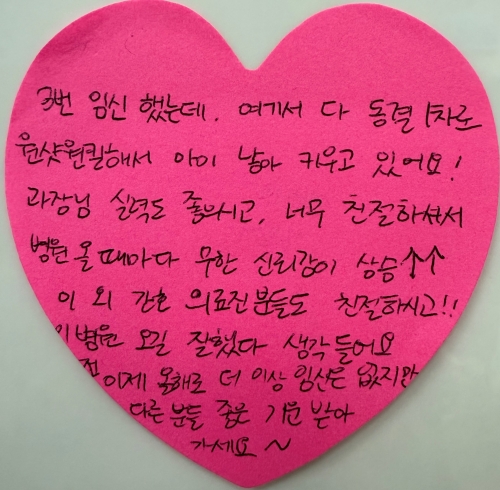 3번 임신 했는데. 여기서 다 동결 1차로
원샷원킬해서 아이 낳아 키우고 있어요!
과장님 실력도 좋으시고, 너무 친절하셔서
병원 올 때마다 무한 신뢰감이 상승↑↑
이 외 간호 의료진분들도 친절하시고!!
이 병원 오길 잘했다 생각 들어요
전 이제 올해로 더 이상 임신은 없지만
다른 분들 좋은 기운 받아
가세요~